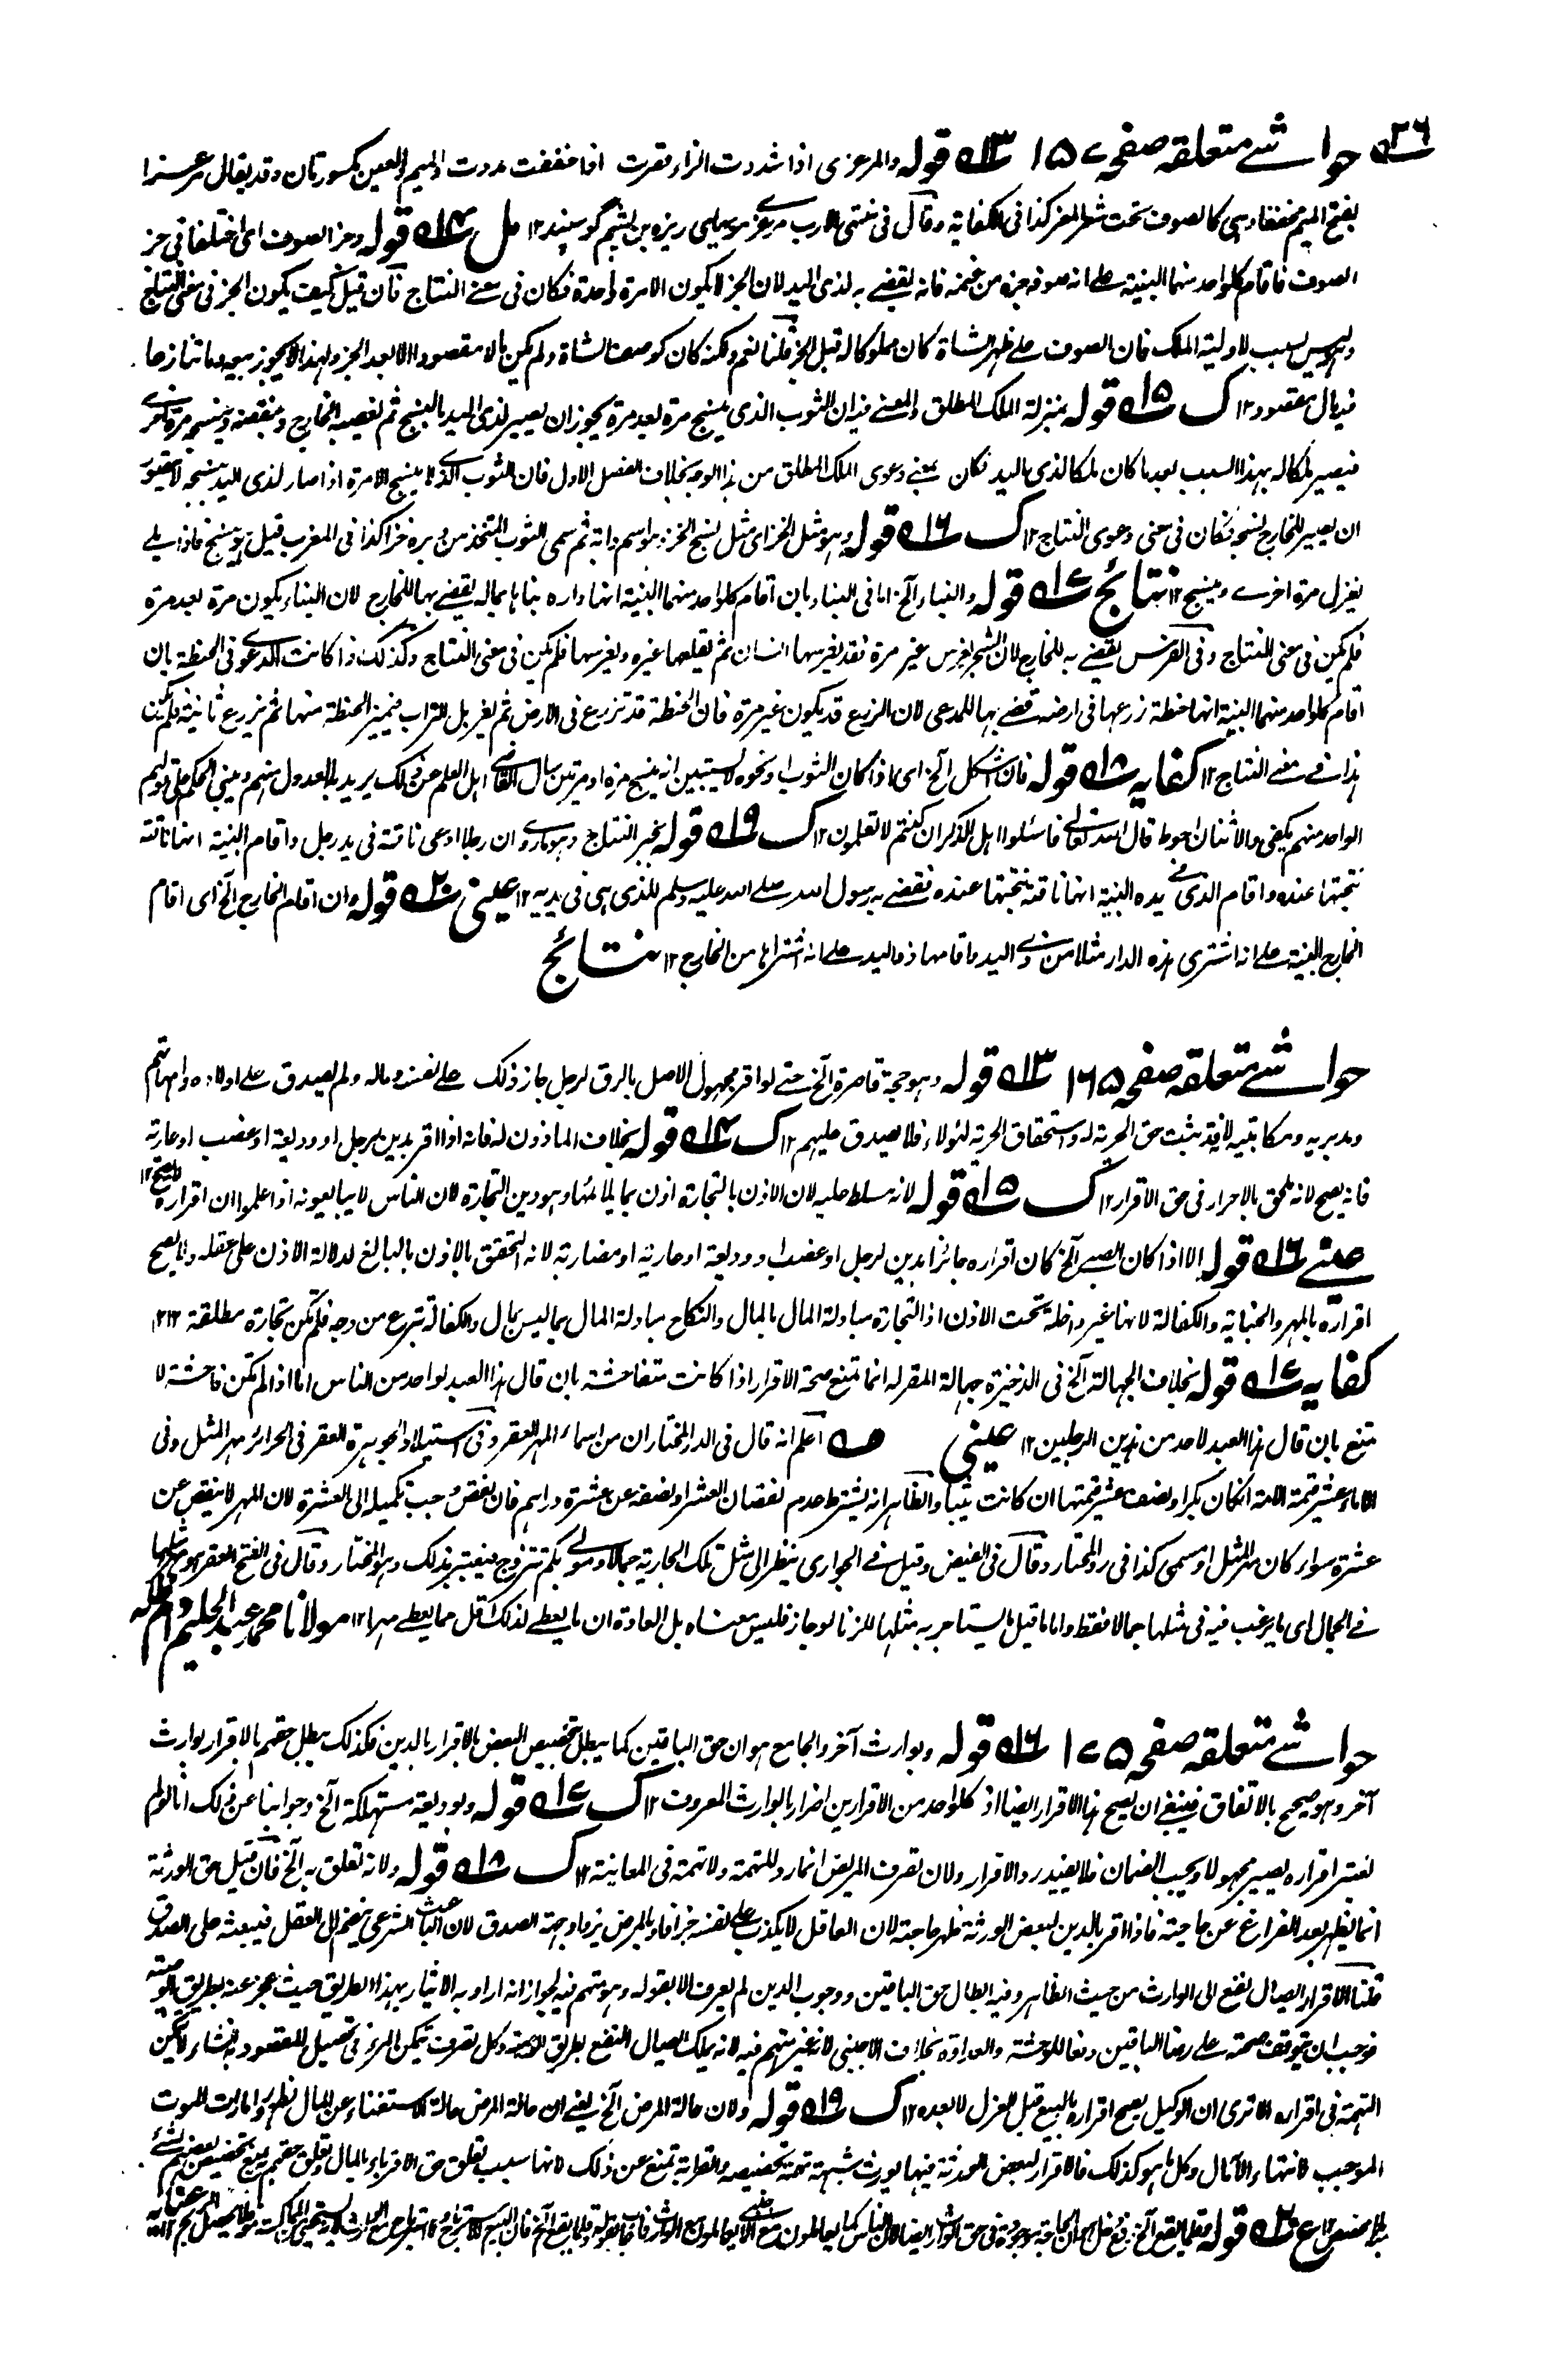 ٣٦
حواشے متعلقہ صفحہ ١٥٧ ١٣ قولہ والمرعزی اذا شددت الزاء قصرت اذا خففت مددت والمیم والعین مکسورتان وقد یقال مرعزا
بفتح المیم مخففا وہی کالصوف تحت شعر المعز کذا فی الکفایۃ وقال فی منتہی الارب مرعزی ریزہ بن پشم گوسپند ١٢ مل ١٤ قولہ وجز الصوف ای اختلفا فی جز
الصوف فاقام کل واحد منہما البینۃ علی انہ صوفہ جزہ من غنمہ فانہ یقضے بہ لذی الید لان الجز لا یکون الا مرۃ واحدۃ فکان فی معنے النتاج فان قیل کیف یکون الجز فی معنی النتاج
ولیس بسبب لاولیۃ الملک فان الصوف علی ظہر الشاۃ کان مملوکا لہ قبل الجز قلنا نعم ولکنہ کان کوصف الشاۃ ولم یکن مالا مقصودا الا بعد الجز ولہذا لا یجوز بیعہ وما تنازعا
فیہ مال مقصود ١٢ ک ١٥ قولہ بمنزلۃ الملک المطلق والمعنے فیہ ان الثوب الذی ینسج مرۃ بعد مرۃ یجوز ان یصیر لذی الید بالنسج ثم یغصبہ الخارج وینقضہ وینسجہ مرۃ اخرے
فیصیر ملکا لہ بہذا السبب بعد ما کان ملکا لذی الید فکان بمعنے دعوی الملک المطلق من ہذا الوجہ بخلاف الفصل الاول فان الثوب الذی لا ینسج الا مرۃ اذا صار لذی الید بنسجہ لا یتصور
ان یصیر للخارج بنسجہ فکان فی معنی دعوی النتاج ١٢ ک ١٦ قولہ وہو مثل الخز ای مثل نسج الخز وہو اسم دابۃ ثم سمی الثوب المتخذ من وبرہ خزا کذا فی المغرب قیل ہو ینسج فاذا بلے
یغزل مرۃ اخرے وینسج ١٢ نتائج ١٧ قولہ والبناء الخ اما فی البناء بان اقام کل واحد منہما البینۃ انہا دارہ بناہا بمالہ یقضے بہا للخارج لان البناء یکون مرۃ بعد مرۃ
فلم یکن فی معنی النتاج وفی الغرس یقضے بہ للخارج لان الشجر یغرس غیر مرۃ فقد یغرسہا انسان ثم یقلعہا غیرہ ویغرسہا فلم یکن فی معنی النتاج وکذلک اذا کانت الدعوے فی الحنطۃ بان
اقام کل واحد منہما البینۃ انہا حنطۃ زرعہا فی ارضہ قضے بہا للمدعی لان الزرع قد یکون غیر مرۃ فان الحنطۃ قد تزرع فی الارض ثم یغربل التراب فیمیز الحنطۃ منہا ثم تزرع ثانیۃ فلم یکن
ہذا فے معنے النتاج ١٢ کفایہ ١٨ قولہ فان اشکل الخ ای فاذا کان الثوب او نحوہ لا یستبین انہ ینسج مرۃ او مرتین سأل القاضے اہل العلم عن ذلک یرید بہ العدول منہم ویبنی الحکم علی قولہم
الواحد منہم یکفی والاثنان احوط قال اللہ تعالے فاسئلوا اہل الذکر ان کنتم لا تعلمون ١٢ ک ١٩ قولہ بخبر النتاج وہو ما روے ان رجلا ادعی ناقۃ فی ید رجل واقام البینۃ انہا ناقتہ
نتجتہا عندہ واقام الذی فی یدہ البینۃ انہا ناقتہ نتجتہا عندہ فقضے بہ رسول اللہ صلے اللہ علیہ وسلم للذی ہی فی یدیہ ١٢ عینی ٢٠ قولہ وان اقام الخارج الخ ای اقام
الخارج البینۃ علے انہ اشتری ہذہ الدار مثلا من ذے الید واقامہا ذو الید علے انہ اشتراہا من الخارج ١٢ نتائج
حواشے متعلقہ صفحہ ١٦٥ ١٣ قولہ وہو حجۃ قاصرۃ الخ حتے لو اقر مجہول الاصل بالرق لرجل جاز ذلک علے نفسہ ومالہ ولم یصدق علے اولادہ وامہاتہم
ومدبریہ ومکاتبیہ لانہ قد یثبت حق الحریۃ لہ واستحقاق الحریۃ لہؤلاء فلا یصدق علیہم ١٢ ک ١٤ قولہ بخلاف الماذون لہ فانہ اذا اقر بدین لرجل او ودیعۃ او غصب او عاریۃ
فانہ یصح لانہ ملحق بالاحرار فی حق الاقرار ١٢ ک ١٥ قولہ لانہ مسلط علیہ لان الاذن بالتجارۃ اذن بما یلائمہا وہو دین التجارۃ لان الناس لا یبایعونہ اذا علموا ان اقرارہ لا یصح ١٢
عینے ١٦ قولہ الا اذا کان الصبی الخ کان اقرارہ جائزا بدین لرجل او غصب او ودیعۃ او عاریۃ او مضاربۃ لانہ التحق بالاذن بالبالغ لدلالۃ الاذن علی عقلہ ولا یصح
اقرارہ بالمہر والجنایۃ والکفالۃ لانہا غیر داخلۃ تحت الاذن اذ التجارۃ مبادلۃ المال بالمال والنکاح مبادلۃ المال بما لیس بمال والکفالۃ تبرع من وجہ فلم تکن تجارۃ مطلقۃ ١٢
کفایہ ١٧ قولہ بخلاف الجہالۃ الخ فی الذخیرۃ جہالۃ المقر لہ انما تمنع صحۃ الاقرار اذا کانت متفاحشۃ بان قال ہذا العبد لواحد من الناس اما اذا لم تکن فاحشۃ لا
تمنع بان قال ہذا العبد لاحد من ہذین الرجلین ١٢ عینی اعلم انہ قال فی الدر المختار ان من اسماء المہر العقر وفی استیلاد الجوہرۃ العقر فی الحرائر مہر المثل وفی
الاماء عشر قیمۃ الامۃ ان کان بکرا ونصف عشر قیمتہا ان کانت ثیبا والظاہر انہ یشترط عدم نقصان العشر او نصفہ عن عشرۃ دراہم فان نقص وجب تکمیلہ الی العشرۃ لان المہر لا ینقص عن
عشرۃ سواء کان مہر المثل او مسمی کذا فی رد المحتار وقال فی الفیض وقیل فے الجواری ینظر الی مثل تلک الجاریۃ جمالا ومولے بکم تتزوج فیعتبر بذلک وہو المختار وقال فی الفتح العقر ہو مہر مثلہا
فے الجمال ای ما یرغب فیہ فی مثلہا جمالا فقط واما ما قیل ما یستاجر بہ مثلہا للزنا لو جاز فلیس معناہ بل العادۃ ان ما یعطے لذلک اقل مما یعطے مہرا ١٢ مولانا محمد عبد الحلیم دام ظلہ
حواشے متعلقہ صفحہ ١٧٥ ١٦ قولہ وبوارث آخر والجامع ہو ان حق الباقین کما یبطل بتخصیص البعض بالاقرار بالدین فکذلک یبطل حقہم بالاقرار بوارث
آخر وہو صحیح بالاتفاق فینبغے ان یصح ہذا الاقرار ایضا اذ کل واحد من الاقرارین اضرار بالوارث المعروف ١٢ ک ١٧ قولہ وبودیعۃ مستہلکۃ الخ وجوابنا عن ذلک انا لو لم
نعتبر اقرارہ یصیر مجہلا ویجب الضمان فلا یفید رد الاقرار ولان تصرف المریض انما رد للتہمۃ ولا تہمۃ فی المعاینۃ ١٢ ک ١٨ قولہ ولانہ تعلق بہ الخ فان قیل حق الورثۃ
انما یظہر بعد الفراغ عن حاجتہ فاذا اقر بالدین لبعض الورثۃ ظہر حاجتہ لان العاقل لا یکذب علی نفسہ جزافا وبالمرض یزداد جہۃ الصدق لان الباعث الشرعی ینضم الی العقل فیبعثہ علی الصدق
قلنا الاقرار ایصال نفع الی الوارث من حیث الظاہر وفیہ ابطال حق الباقین ووجوب الدین لم یعرف الا بقولہ وہو متہم فیہ لجواز انہ اراد بہ الایثار بہذا الطریق حیث عجز عنہ بطریق الوصیۃ
فوجب ان یتوقف صحتہ علی رضا الباقین دفعا للوحشۃ والعداوۃ بخلاف الاجنبی لانہ غیر متہم فیہ لانہ یملک ایصال النفع بطریق الوصیۃ وکل تصرف یتمکن المرء فی تحصیل المقصود بہ انشاء لا تتمکن
التہمۃ فی اقرارہ الا تری ان الوکیل یصح اقرارہ بالبیع قبل العزل لا بعدہ ١٢ ک ١٩ قولہ ولان حالۃ المرض الخ یعنے ان حالۃ المرض حالۃ الاستغناء عن المال لظہور امارات الموت
الموجب لانتہاء الآمال وکل ما ہو کذلک فالاقرار لبعض الورثۃ فیہا یورث شبہۃ تہمۃ تخصیصہ والقرابۃ تمنع عن ذلک لانہا سبب تعلق حق الاقرباء بالمال وتعلق حقہم بہ یمنع تخصیص بعضہم بشئ
بلا مخصص ١٢ ع ٢٠ قولہ